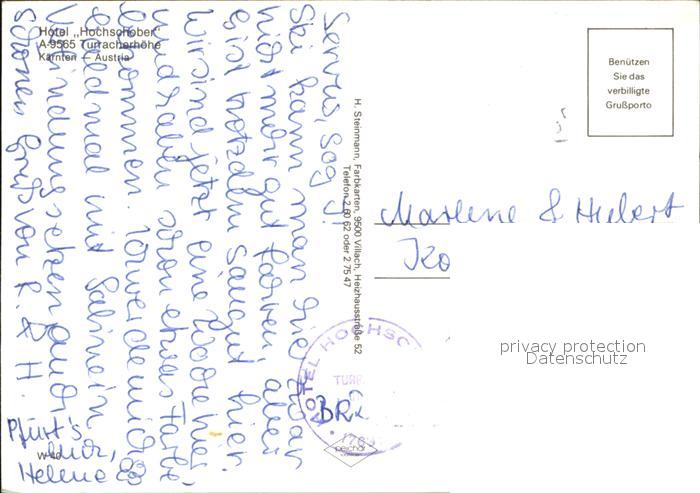 Hotel „Hochschober"
A-9565 Turracherhöhe
Kärnten – Austria
Servus, sog i!
Ski kann man hier zwar
nicht mehr gut fahren aber
es ist trotzdem saugut hier.
Wir sind jetzt eine Woche hier
und haben schon etwas Farbe
bekommen. Ich werde mich
bald mal mit Sabine in
Verbindung setzen auch
schönen Gruß von R. & H.
Pfürt's
Euch,
Helene
W-40
H. Steinmann, Farbkarten, 9500 Villach, Heizhausstraße 52
Telefon 2 60 62 oder 2 75 47
Benützen
Sie das
verbilligte
Grußporto
Marlene & Hubert
Ko
HOTEL HOCHSC
TURR
BRD
privacy protection
Datenschutz